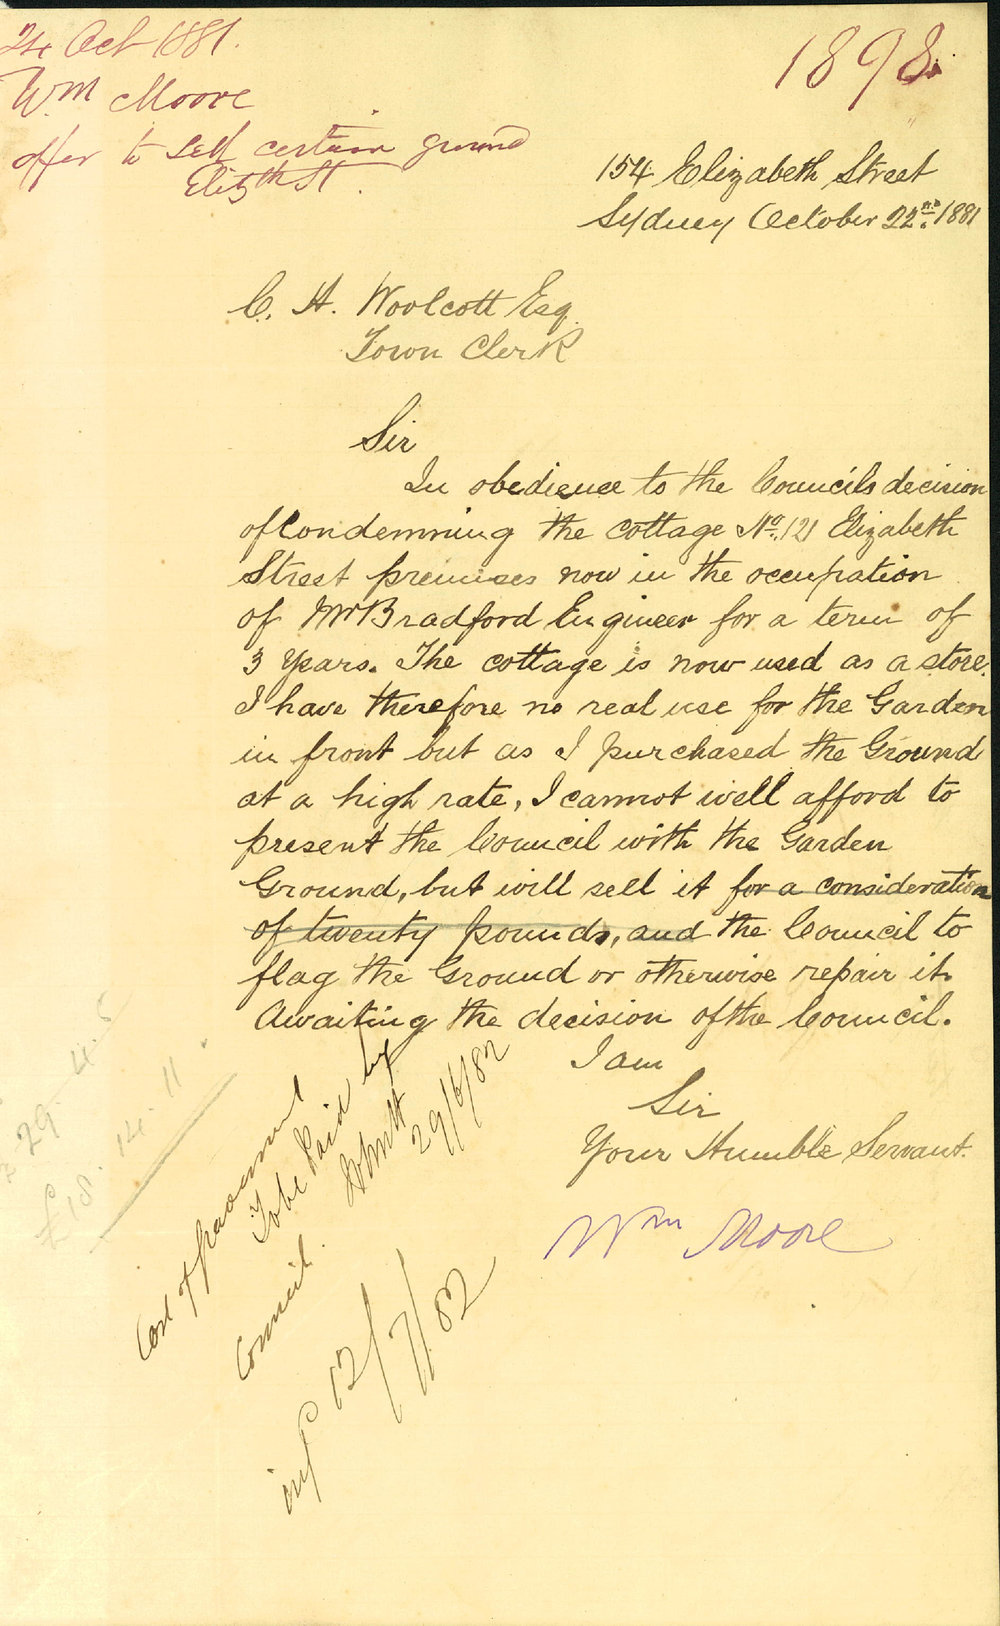 24 Oct 1881.
Wm Moore
offer to sell certain ground
Elizth St.
1898
154 Elizabeth Street
Sydney October 22nd. 1881
C. H. Woolcott Esq.
Town Clerk
Sir
In obedience to the Councils decision
of Condemning the cottage No. 121 Elizabeth
Street premises now in the occupation
of Mr Bradford Engineer for a term of
3 Years. The cottage is now used as a store.
I have therefore no real use for the Garden
in front but as I purchased the Ground
at a high rate, I cannot well afford to
present the Council with the Garden
Ground, but will sell it for a consideration
of twenty pounds, and the Council to
flag the Ground or otherwise repair it.
Awaiting the decision of the Council.
I am
Sir
Your Humble Servant.
Wm Moore
Cost of pavement
To be Paid by
Council.
29/6/82
inf 12/7/82
29. 4. 5
£18. 14. 11.